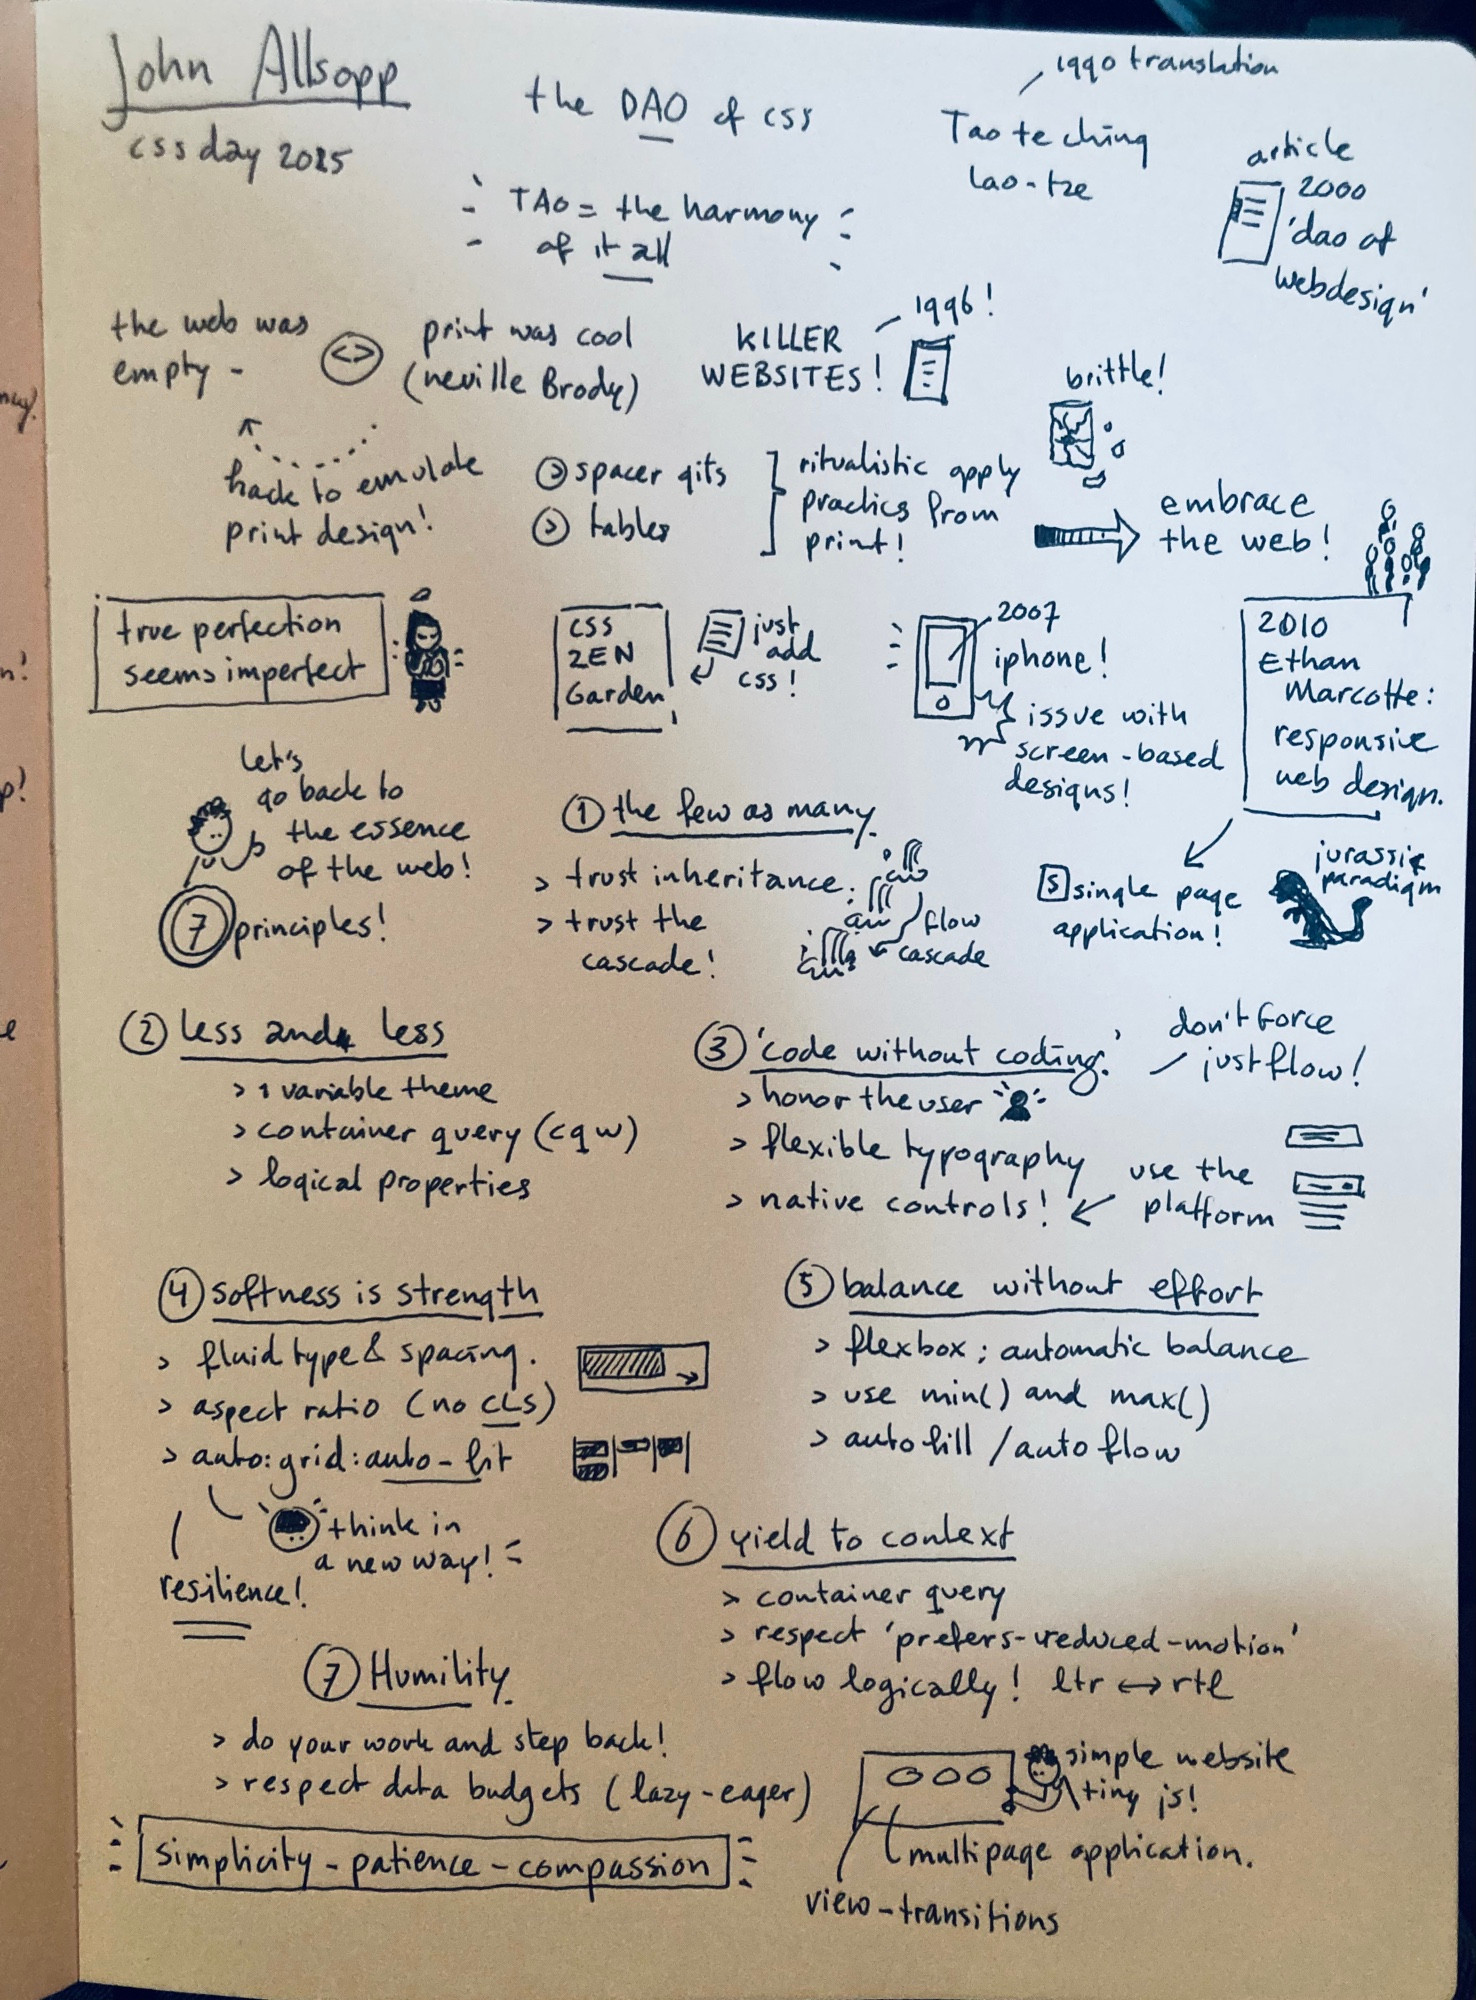 John Allsopp
css day 2025
the DAO of css
1990 translation
Tao te ching
lao-tze
article
2000
'dao of
webdesign'
TAO = the harmony
of it all
the web was
empty -
<>
print was cool
(neville Brody)
KILLER
WEBSITES!
1996!
hack to emulate
print design!
> spacer gifs
> tables
ritualistic apply
practics from
print!
brittle!
embrace
the web!
true perfection
seems imperfect
CSS
ZEN
Garden
just
add
css!
2007
iphone!
issue with
screen-based
designs!
2010
Ethan
Marcotte:
responsive
web design.
let's
go back to
the essence
of the web!
7 principles!
1 the few as many
> trust inheritance.
> trust the
cascade!
flow
cascade
S single page
application!
jurassic
paradigm
2 less and less
> 1 variable theme
> container query (cqw)
> logical properties
3 'code without coding.'
don't force
just flow!
> honor the user
> flexible typography
> native controls!
use the
platform
4 softness is strength
> fluid type & spacing.
> aspect ratio (no CLS)
> auto:grid:auto-fit
think in
a new way!
resilience!
5 balance without effort
> flexbox: automatic balance
> use min() and max()
> autofill / auto flow
6 yield to context
> container query
> respect 'prefers-reduced-motion'
> flow logically! ltr <-> rtl
7 Humility.
> do your work and step back!
> respect data budgets (lazy-eager)
simplicity - patience - compassion
simple website
tiny js!
multipage application.
view-transitions